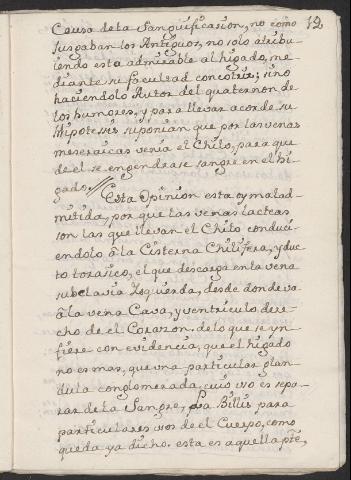 12
Causa de la Sanguificasion, no como
jusgaban los Antiguos, no solo atribu-
iendo esta admirable al higado, me-
diante su facultad concotrix; sino
haciendolo Autor del quaternon de
los humores, y para llevar acorde su
Hipotessis suponian que por las venas
meseraicas venia el Chilo, para que
de el se engendrase sangre en el hi-
gado. // Esta Opinion esta oy mal ad-
mitida, por que las venas lacteas
son las que llevan el Chilo conduci-
endolo â la Cisterna Chilifera, y duc-
to torasico, el que descarga en la vena
subclavia Isquierda, desde donde va
â la vena Cava, y ventriculo dere-
cho de el Corazon. de lo que se yn-
fiere con evidencia, que el higado
no es mas, que vna particular glan-
dula conglomerada, cuio vso es sepa-
rar de la Sangre, la Billis para
particulares vsos de el Cuerpo, como
queda ya dicho. esta es aquella pte,